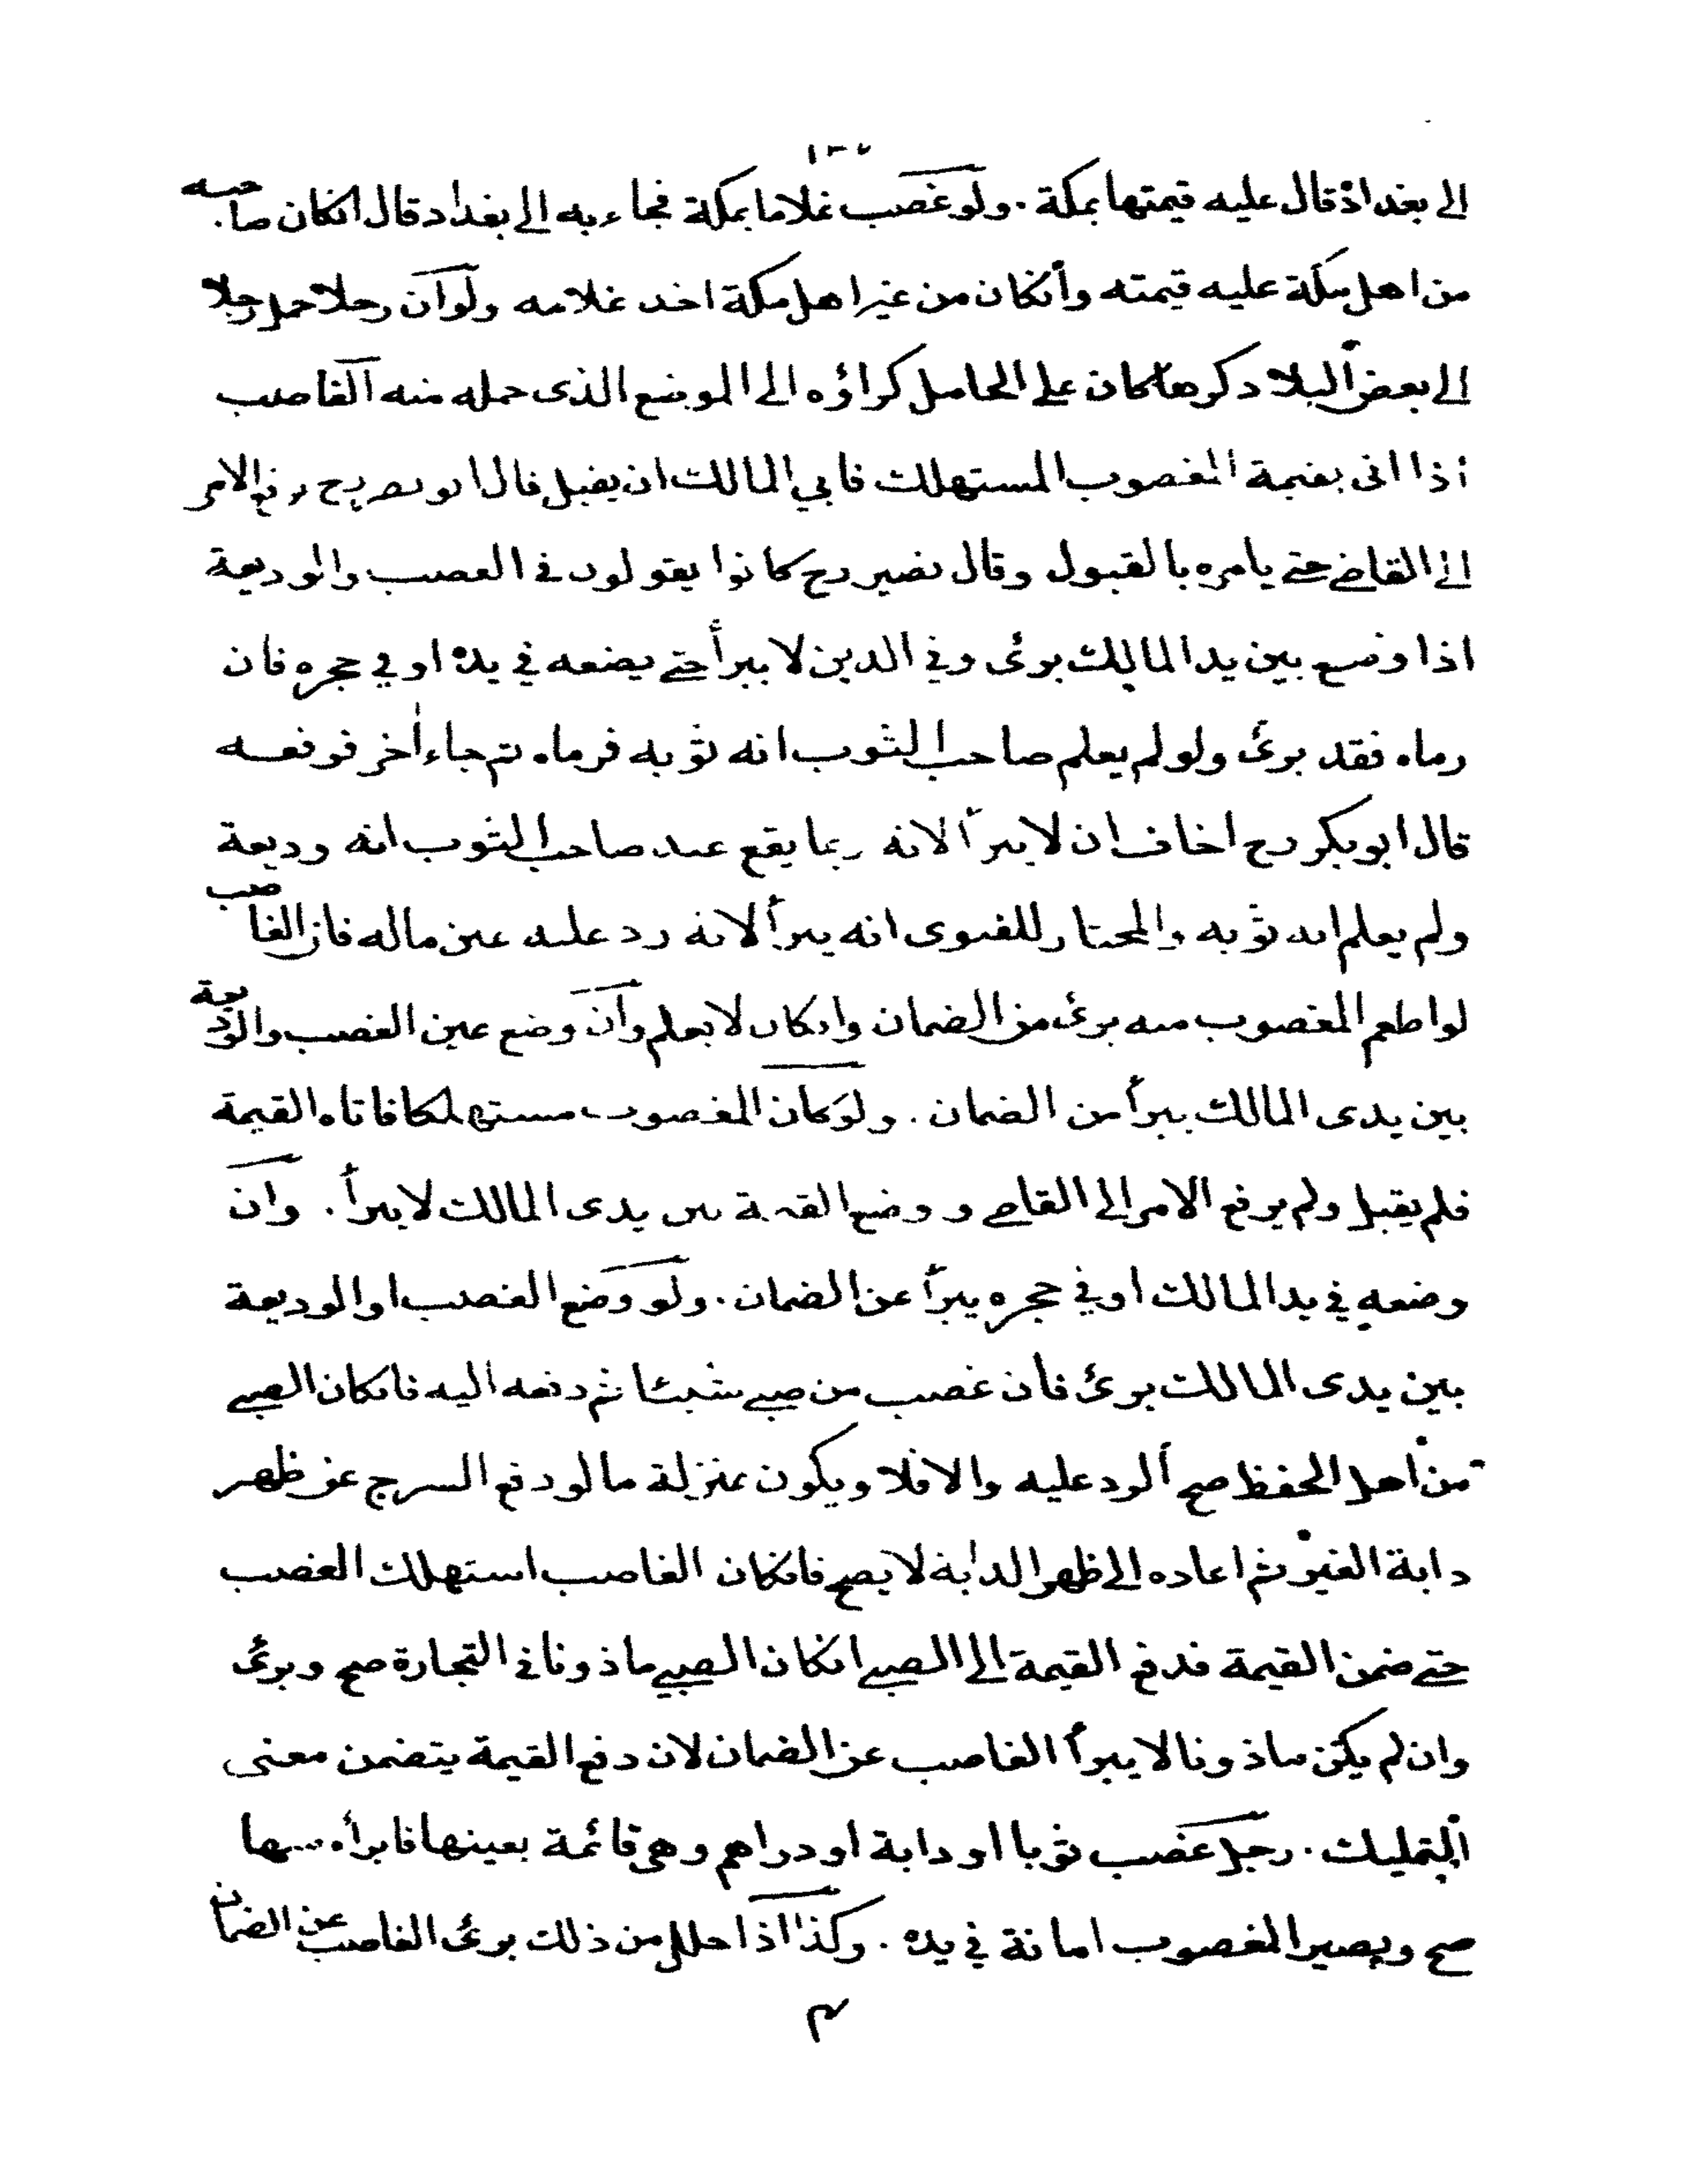 الى بغداد قال عليه قيمتها بمكة . ولو غصب غلاما بمكة فجاء به الى بغداد قال انكان صاحبه
من اهل مكة عليه قيمته وانكان من غير اهل مكة اخذ غلامه ولو ان رجلا حمل رجلا
الى بعض البلاد كرها كان على الحامل كراؤه الى الموضع الذى حمله منه الغاصب
اذا اتى بقيمة المغصوب المستهلك فابى المالك ان يقبل قال ابو نصر رح رفع الامر
الى القاضى حتى يامره بالقبول وقال نصير رح كانوا يقولون فى الغصب والوديعة
اذا وضع بين يد المالك برئ وفى الدين لا يبرأ حتى يضعه فى يده او فى حجره فان
رماه فقد برئ ولو لم يعلم صاحب الثوب انه ثوبه فرماه ثم جاء آخر فرفعه
قال ابو بكر رح اخاف ان لا يبرأ لانه ربما يقع عند صاحب الثوب انه وديعة
ولم يعلم انه ثوبه والمختار للفتوى انه يبرأ لانه رد عليه عين ماله فان الغاصب
لو اطعم المغصوب منه برئ من الضمان وانكان لا يعلم وان وضع عين الغصب والوديعة
بين يدى المالك يبرأ من الضمان . ولو كان المغصوب مستهلكا فاتاه القيمة
فلم يقبل ولم يرفع الامر الى القاضى و وضع القيمة بين يدى المالك لا يبرأ . وان
وضعه فى يد المالك او فى حجره يبرأ عن الضمان . ولو وضع الغصب او الوديعة
بين يدى المالك برئ فان غصب من صبى شيئا ثم دفعه اليه فانكان الصبى
من اهل الحفظ صح الرد عليه والا فلا ويكون بمنزلة ما لو دفع السرج عن ظهر
دابة الغير ثم اعاده الى ظهر الدابة لا يصح فانكان الغاصب استهلك الغصب
حتى ضمن القيمة فدفع القيمة الى الصبى انكان الصبى ماذونا فى التجارة صح وبرئ
وان لم يكن ماذونا لا يبرأ الغاصب عن الضمان لان دفع القيمة يتضمن معنى
التمليك . رجل غصب ثوبا او دابة او دراهم وهى قائمة بعينها فابرأه منها
صح ويصير المغصوب امانة فى يده . وكذا اذا حلله من ذلك برئ الغاصب عن الضمان